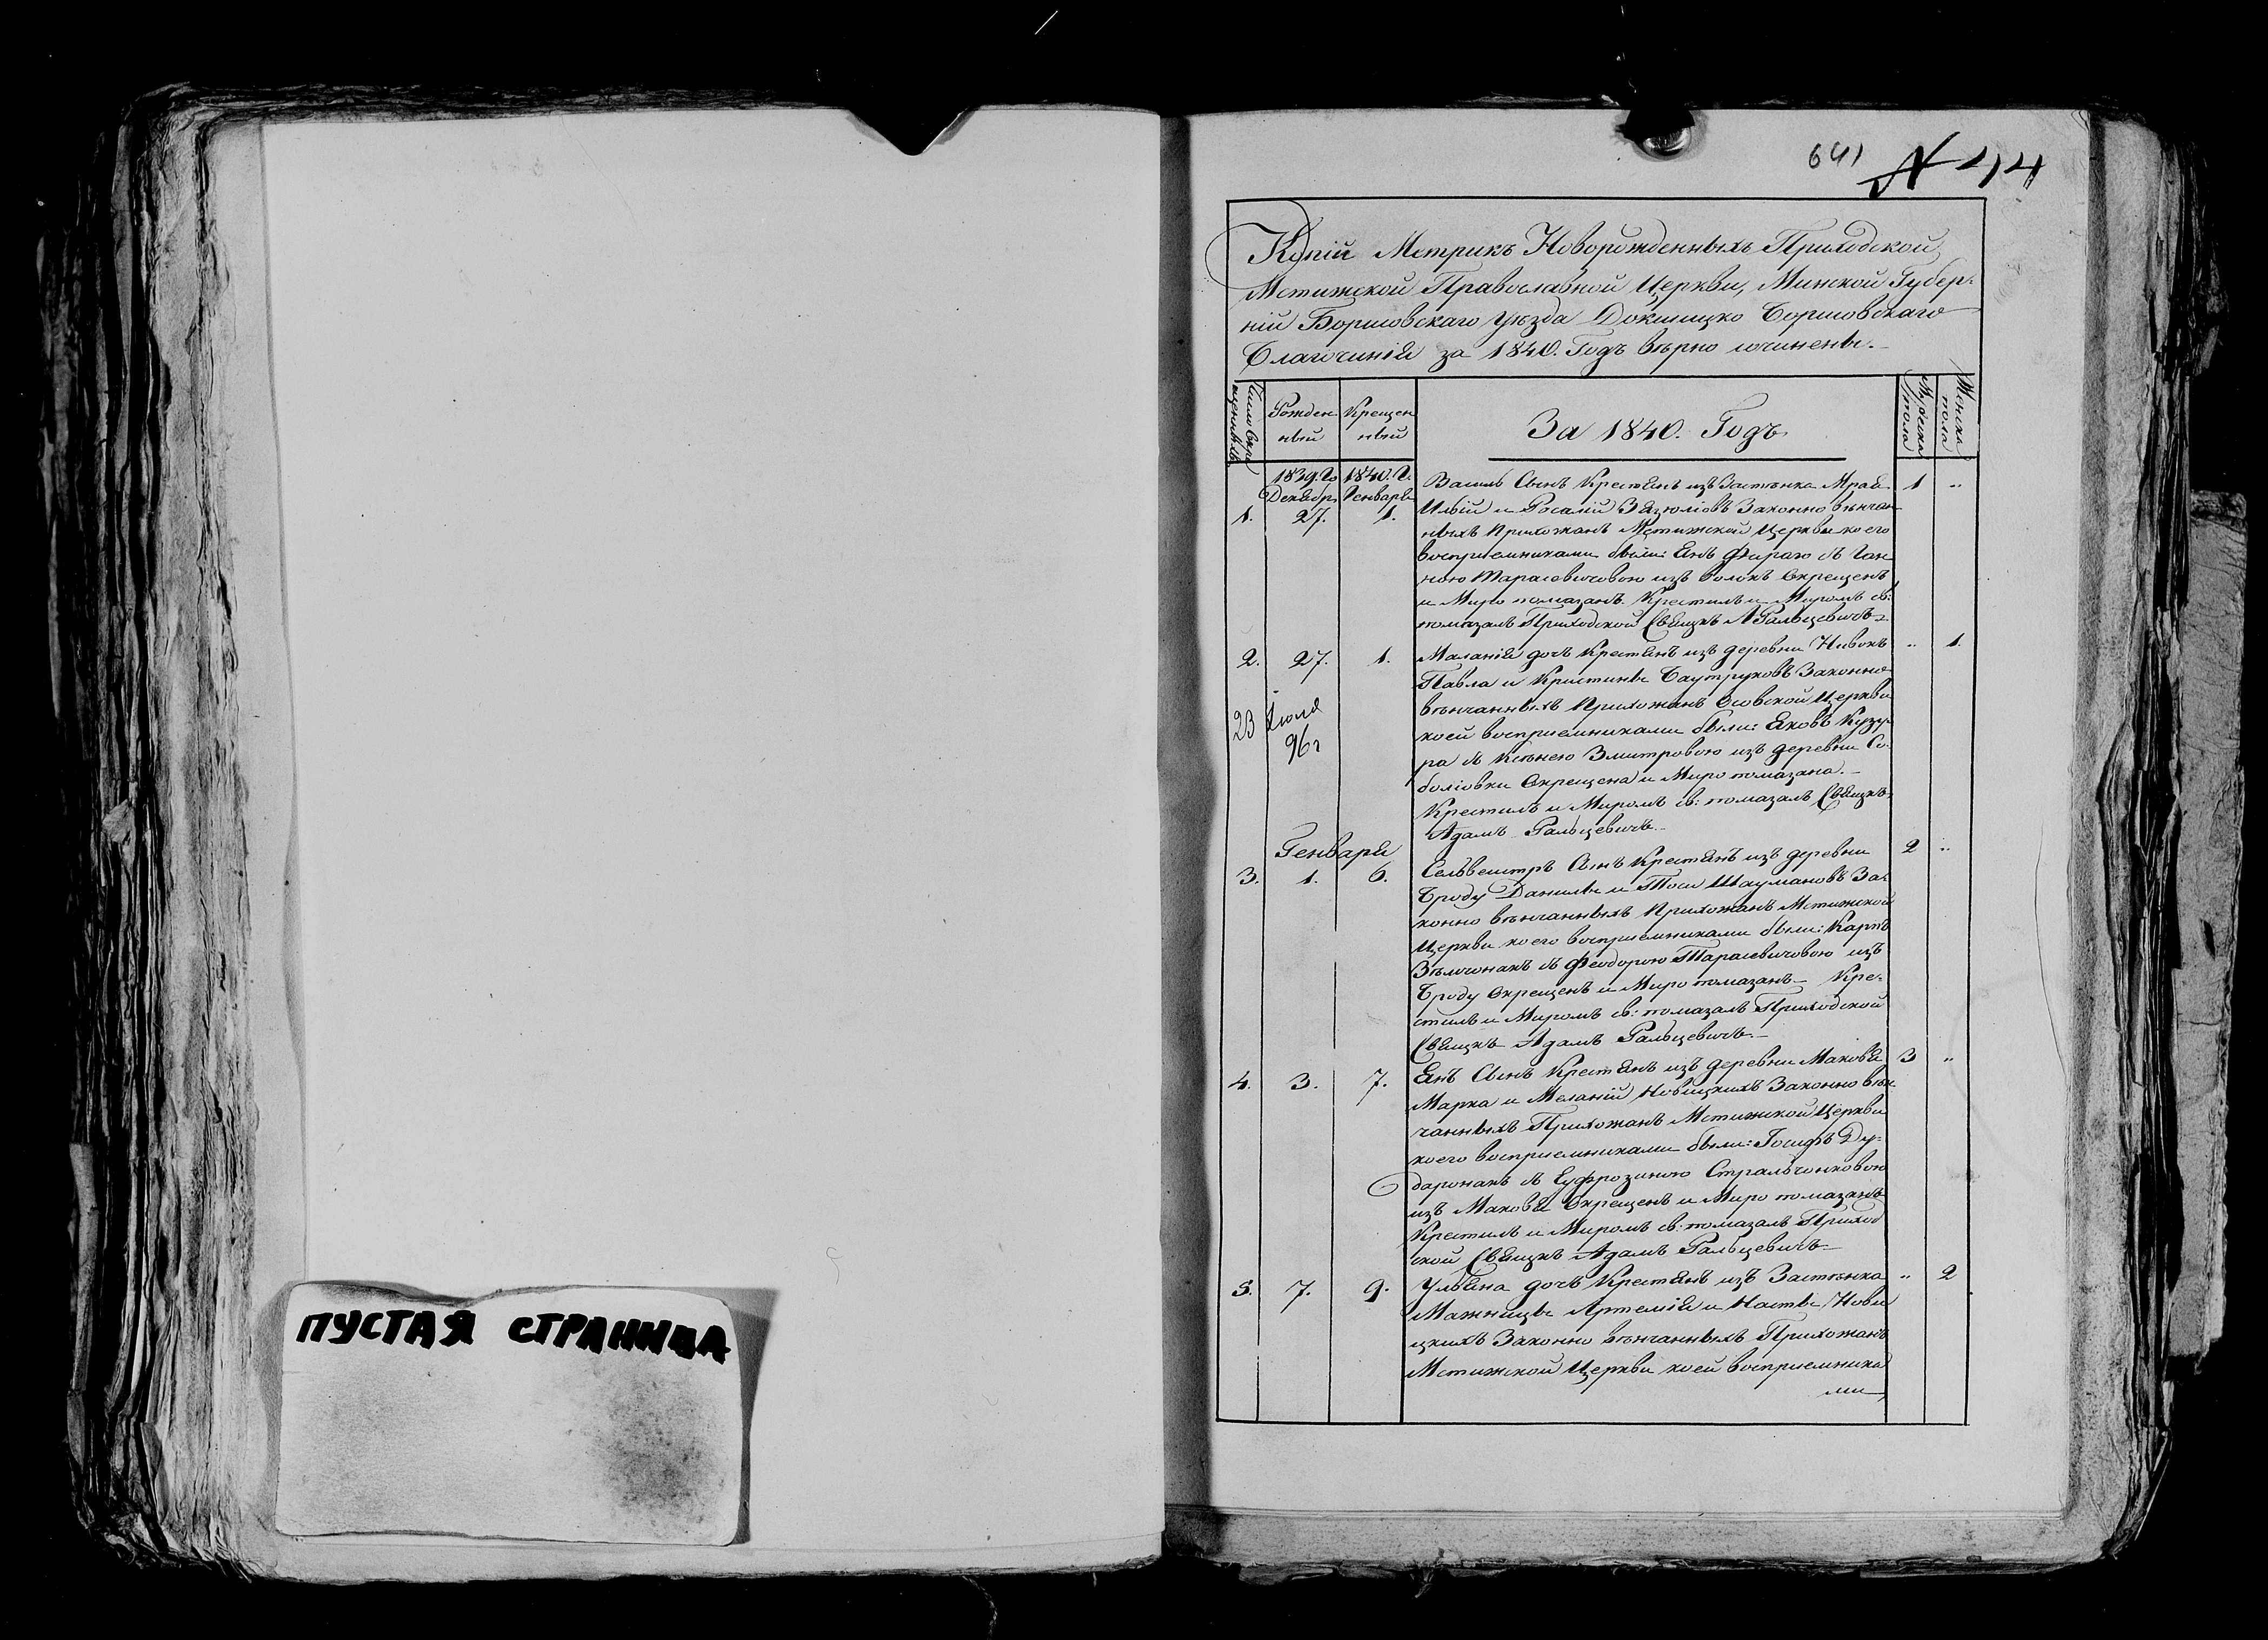 ПУСТАЯ СТРАНИЦА
641 N 44
Копіи Метрикъ Новорожденныхъ Приходской
Мстижской Православной Церкви, Минской Губер-
ніи Борисовскаго Уѣзда Докшицко Борисовскаго
Благочинія за 1840. Годъ вѣрно сочинены.
Число Окре
щенныхъ
Рожден
ный
Крещен
ный
За 1840. Годъ
Мужеска
пола
Женска
пола
1839.Го 1840.Г.
Декабр. Генваря
1. 27. 1.
Василь Сынъ Крестянъ изъ Застѣнка Мрая 1 "
Иліи и Розаліи Зязюлювъ Законно вѣнчан
ныхъ Прихожанъ Мстижской Церкви коего
воспріемниками были: Янъ Фираго съ Ган
ною Тарасевичовою изъ Волокъ Окрещенъ
и Миро помазанъ. Крестилъ и Миромъ св:
помазалъ Приходской Свящкъ А Ральцевичъ
2. 27. 1. Маланія дочь Крестянъ изъ деревни Нивокъ " 1.
Павла и Кристины Баутруковъ Законно
вѣнчанныхъ Прихожанъ Осовской Церкви
23 Іюля
96г
коей воспріемниками были: Яковъ Кузу-
ра съ Ксѣнею Змитровою изъ деревни Со-
боліовки Окрещена и Миро помазана.
Крестилъ и Миромъ св: помазалъ Свящкъ
Адамъ Ральцевичъ.
Генваря
3. 1. 6. Сельвестръ Сынъ Крестянъ изъ деревни 2 "
Броду Данилы и Тоси Шаумановъ За-
конно вѣнчанныхъ Прихожанъ Мстижской
Церкви коего воспріемниками были: Карпъ
съ Феодорою Тарасевичовою изъ
Броду Окрещенъ и Миро помазанъ Кре-
стилъ и Миромъ св: помазалъ Приходской
Свящкъ Адамъ Ральцевичъ.
4. 3. 7. Янъ Сынъ Крестянъ изъ деревни Маковя 3 "
Марка и Меланіи Новицкихъ Законно вѣн
чанныхъ Прихожанъ Мстижской Церкви
коего воспріемниками были: Іосифъ Ду-
даронакъ съ Еуфрозиною Стральчонковою
изъ Маковя Окрещенъ и Миро помазанъ
Крестилъ и Миромъ св: помазалъ Приход
ской Свящкъ Адамъ Ральцевичъ
5. 7. 9. Ульяна дочъ Крестянъ изъ Застѣнка " 2
Мажницы Артемія и Насты Нови
цкихъ Законно вѣнчанныхъ Прихожанъ
Мстижской Церкви коей воспріемника
ми